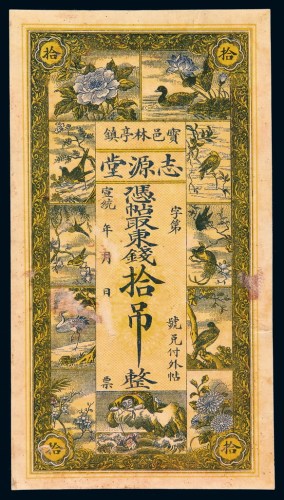 拾 拾
寳邑林亭鎮
志源堂
字第
號兑付外帖
憑帖取東錢拾吊整
宣統 年 月 日
票
拾 拾